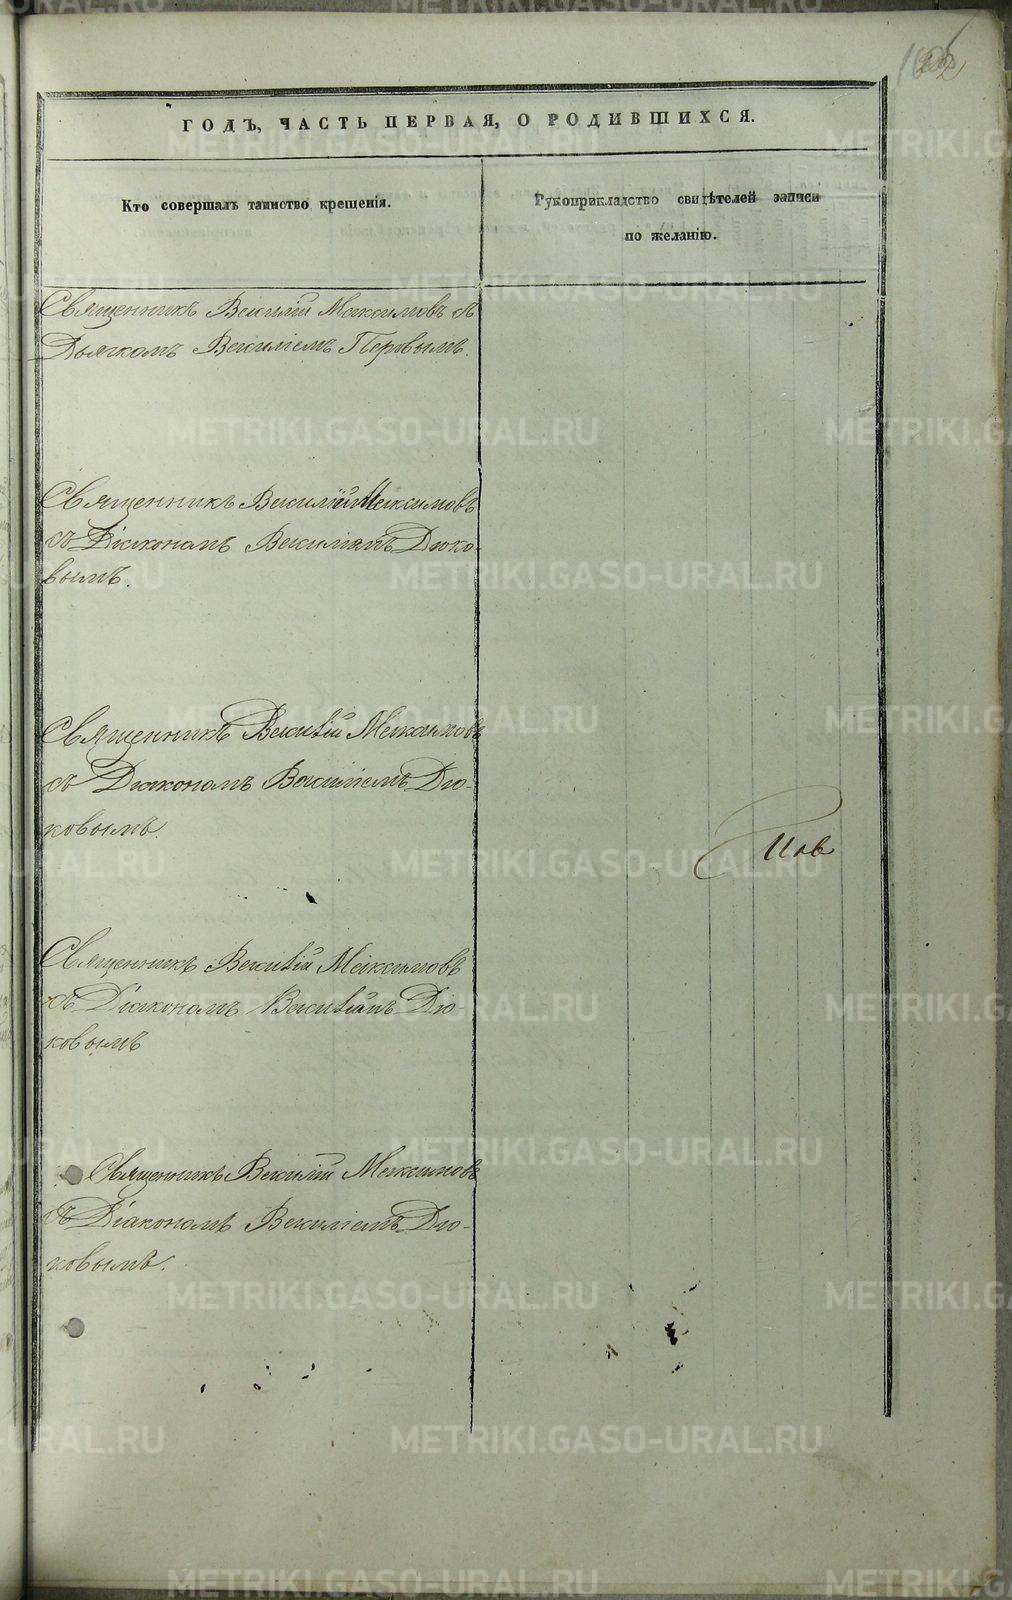 ГОДЪ, ЧАСТЬ ПЕРВАЯ, О РОДИВШИХСЯ.
Кто совершалъ таинство крещенія.
Рукоприкладство свидѣтелей записи
по желанію.
Священникъ Василій Максимовъ съ
Дьячкомъ Василіемъ Первымъ.
Священникъ Василій Максимовъ
съ Діакономъ Василіемъ Дюко-
вымъ.
Священникъ Василій Максимовъ
съ Діакономъ Василіемъ Дю-
ковымъ.
Пов
Священникъ Василій Максимовъ
съ Діакономъ Василіемъ Дю-
ковымъ
Священникъ Василій Максимовъ
съ Діакономъ Василіемъ Дю-
ковымъ.
METRIKI.GASO-URAL.RU